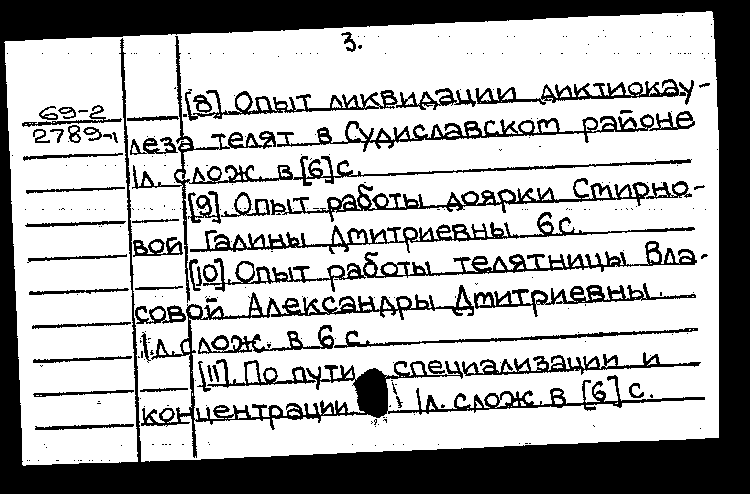 3.
69-2
2789-1
[8] Опыт ликвидации диктиокау-
леза телят в Судиславском районе
1л. слож. в [6] с.
[9]. Опыт работы доярки Смирно-
вой Галины Дмитриевны 6 с.
[10]. Опыт работы телятницы Вла-
совой Александры Дмитриевны.
1л. слож. в 6 с.
[11]. По пути специализации и
концентрации 1л. слож. в [6] с.